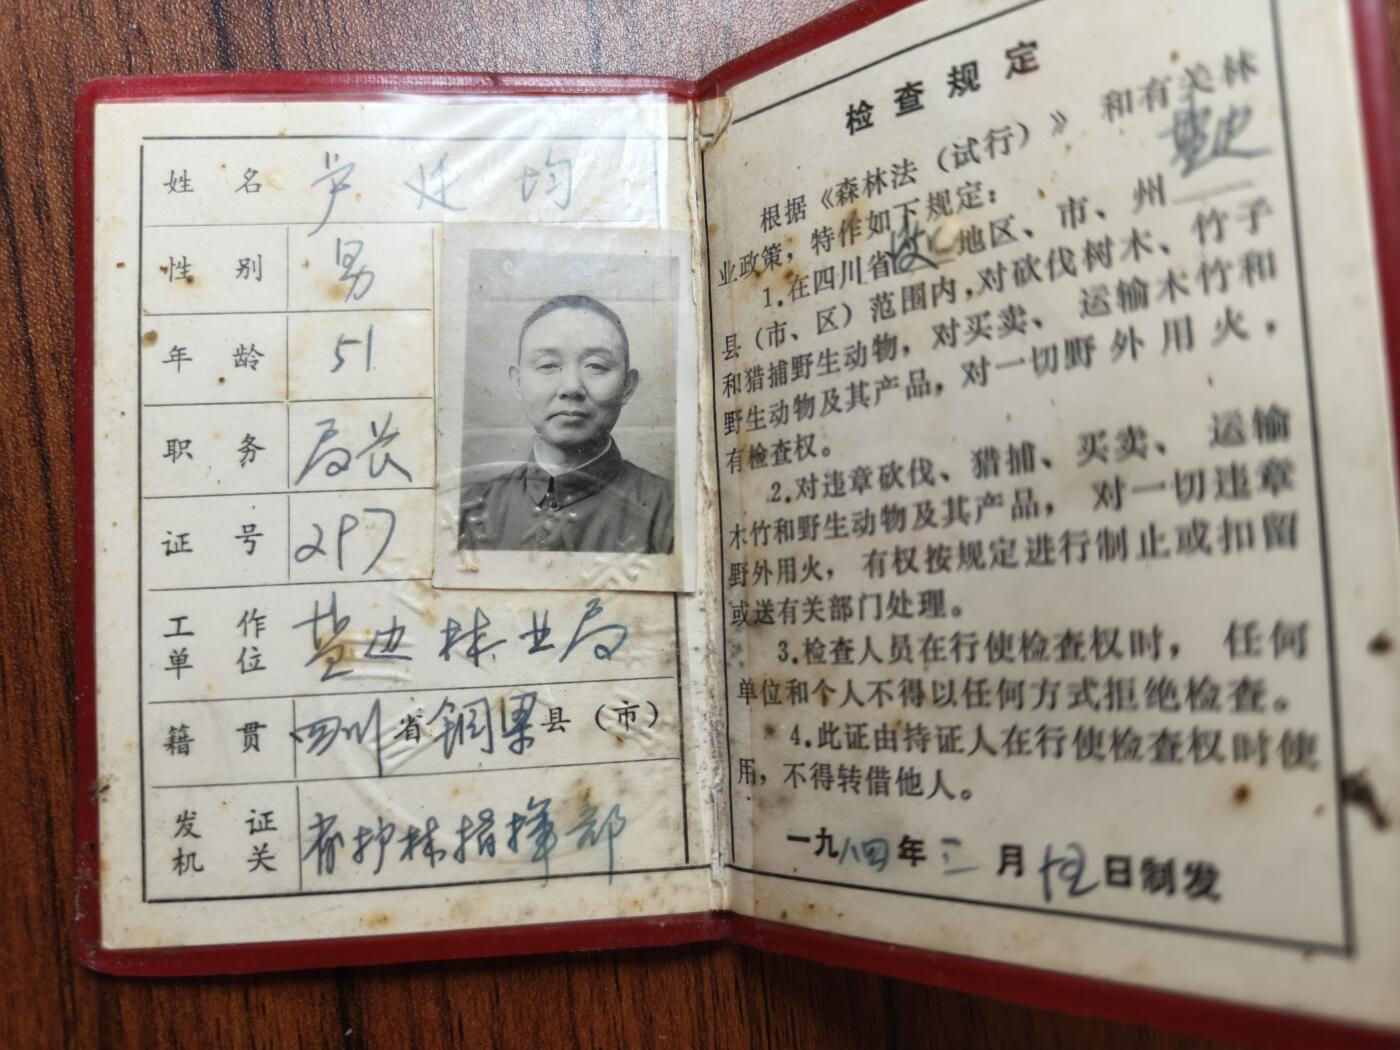 姓名 芦廷均
性别 男
年龄 51
职务 局长
证号 297
工作单位 盐边林业局
籍贯 四川省铜梁县（市）
发证机关 省护林指挥部
检查规定
根据《森林法（试行）》和有关林
业政策，特作如下规定：
1.在四川省 地区、市、州盐边
县（市、区）范围内，对砍伐树木、竹子
和猎捕野生动物，对买卖、运输木竹和
野生动物及其产品，对一切野外用火，
有检查权。
2.对违章砍伐、猎捕、买卖、运输
木竹和野生动物及其产品，对一切违章
野外用火，有权按规定进行制止或扣留
或送有关部门处理。
3.检查人员在行使检查权时，任何
单位和个人不得以任何方式拒绝检查。
4.此证由持证人在行使检查权时使
用，不得转借他人。
一九八四年三月 日制发